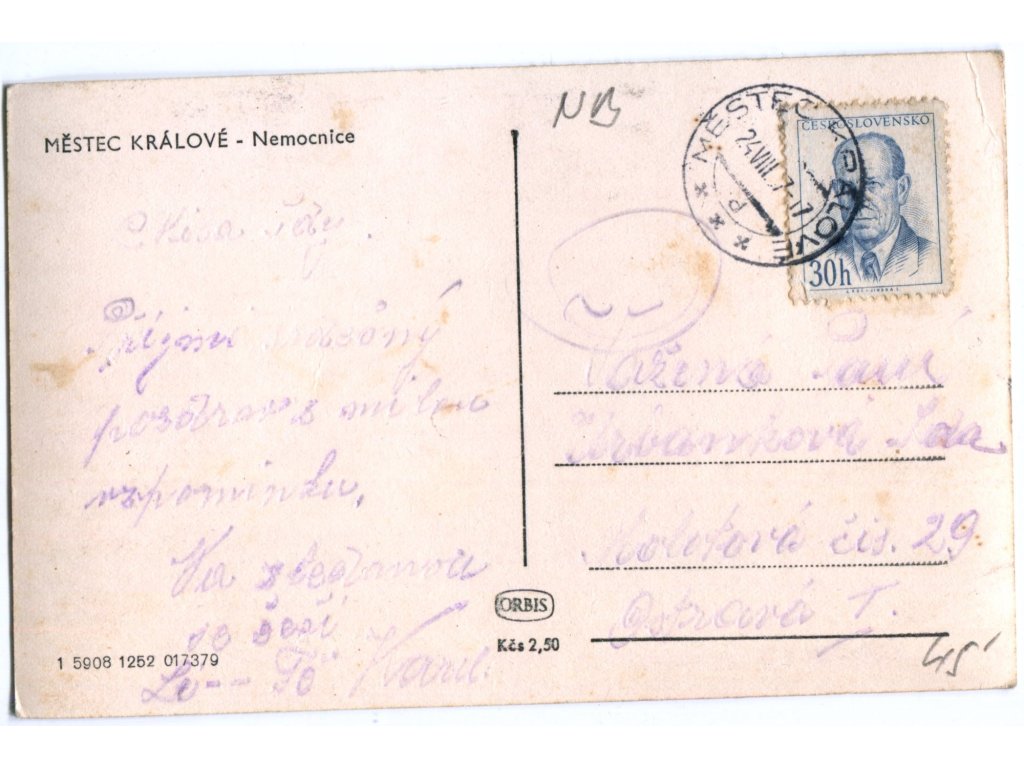 MĚSTEC KRÁLOVÉ - Nemocnice
NB
MĚSTEC KRÁLOVÉ
24.VIII.
ČESKOSLOVENSKO
30h
Přijmi vázóný
pozdrav s milou
vzpomínku.
Na shledanou
se těší
Karel.
Vážená Paní
Urbanková
čís. 29
Ostrava I.
ORBIS
Kčs 2,50
1 5908 1252 017379
45